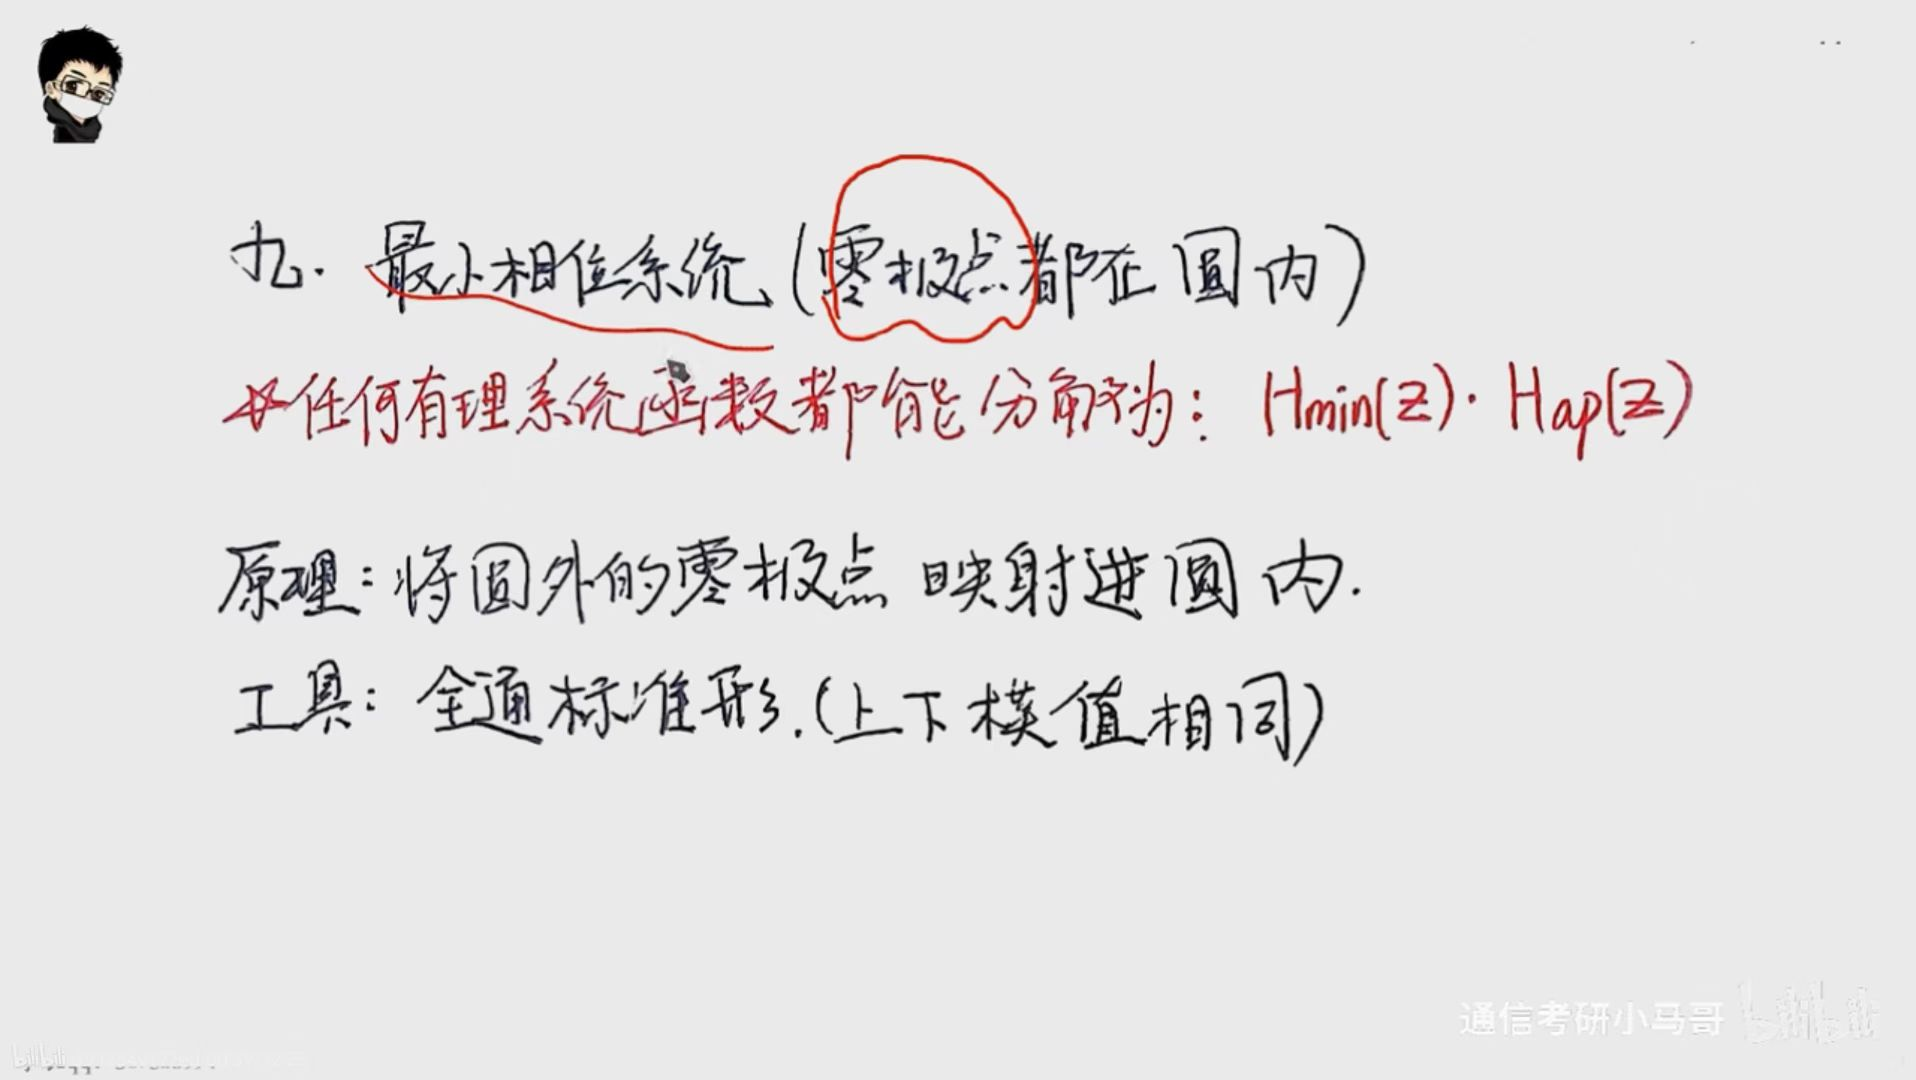 九. 最小相位系统 (零极点都在圆内)
任何有理系统函数都能分解为: Hmin(z)· Hap(z)
原理: 将圆外的零极点 映射进圆内.
工具: 全通标准形. (上下模值相同)
通信考研小马哥 bilibili
bilibili